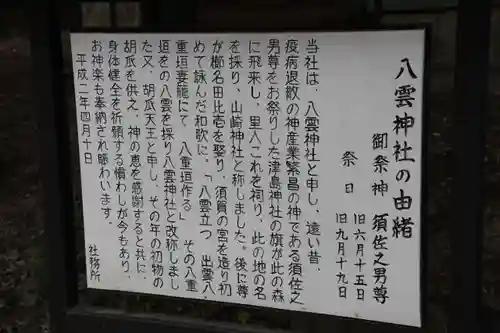 八雲神社の由緒
御祭神　須佐之男尊
祭日　旧六月十五日
旧九月十九日
当社は、八雲神社と申し、遠い昔、
疫病退散の神産業繁昌の神である須佐之
男尊をお祭りした津島神社の旗が此の森
に飛来し、里人これを祠り、此の地の名
を採り、山崎神社と称しました。後に尊
が櫛名田比壱を娶り、須賀の宮を造り初
めて詠んだ和歌に、「八雲立つ　出雲八
重垣妻籠にて　八重垣作る」　その八重
垣をの八雲を採り八雲神社と改称しまし
た又、胡瓜天王と申し、その年の初物の
胡瓜を供え、神の恵を感謝すると共に、
身体健全を祈願する慣わしが今もあり、
お神楽も奉納され賑わいます。
平成二年四月十日
社務所